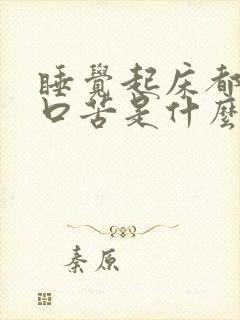 睡覺起床都
口苦是什麼
秦原